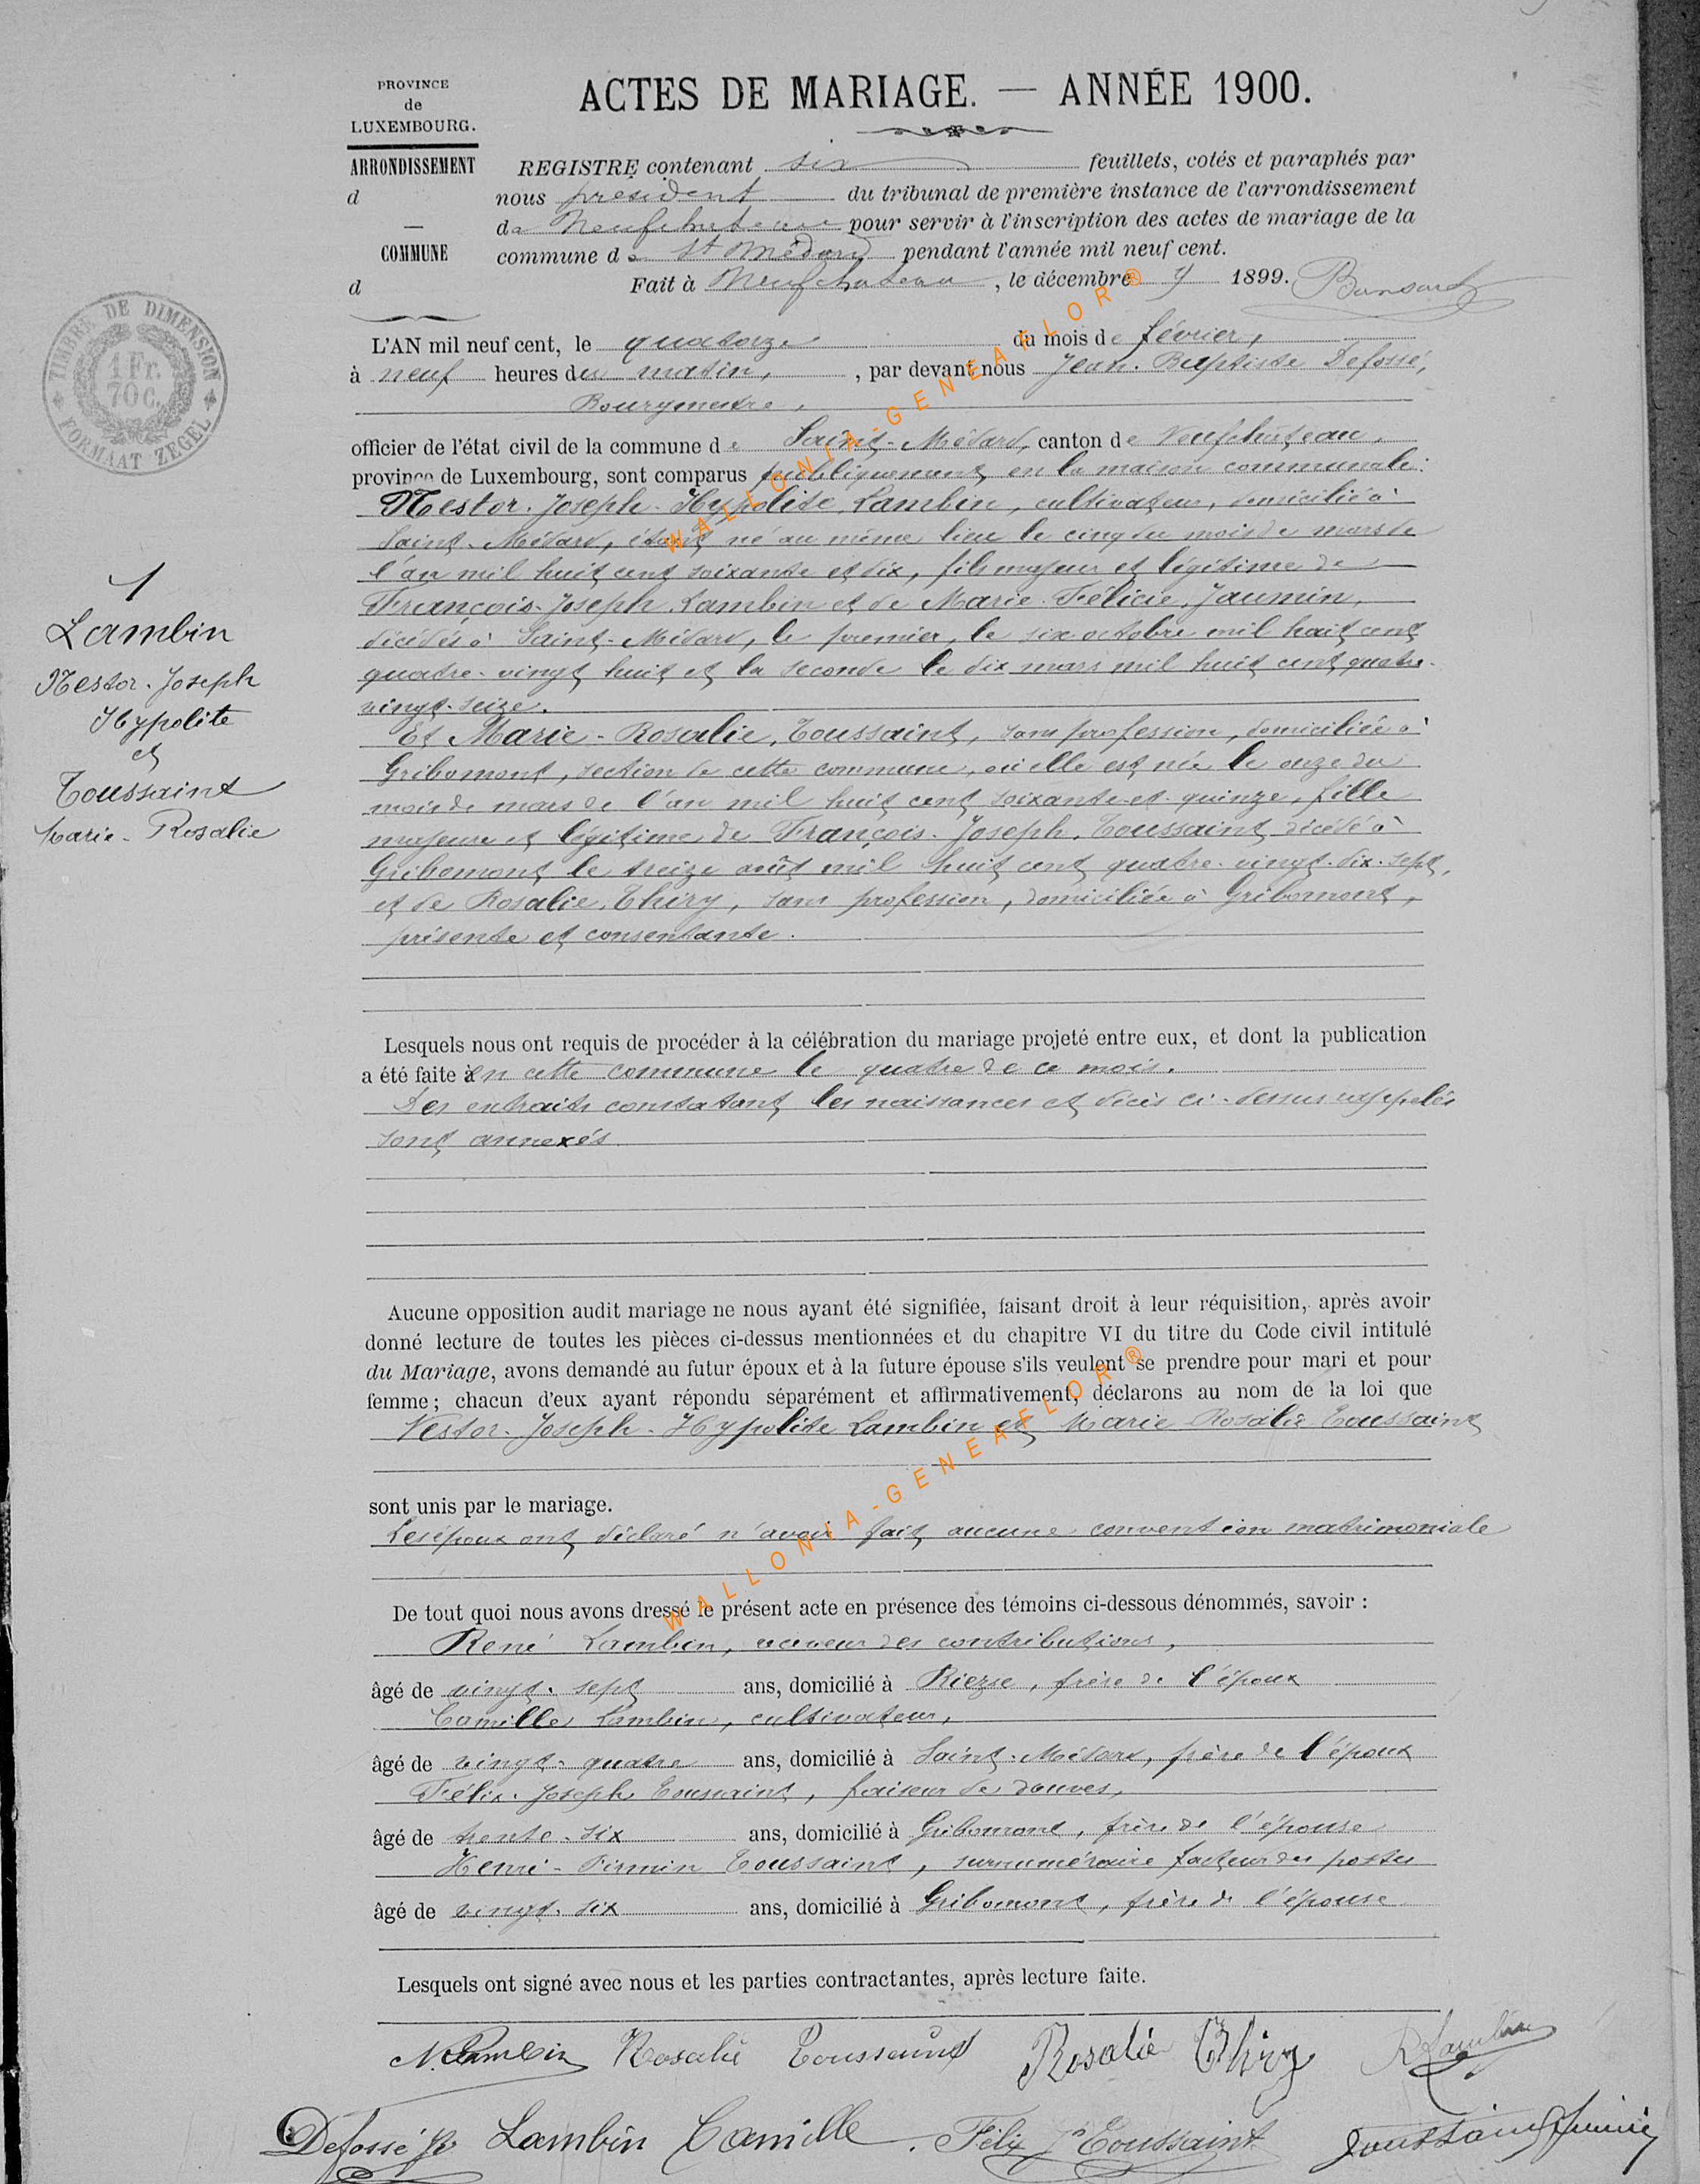 PROVINCE
de
LUXEMBOURG.
ARRONDISSEMENT
d
COMMUNE
d
ACTES DE MARIAGE. — ANNÉE 1900.
REGISTRE contenant six feuillets, cotés et paraphés par
nous président du tribunal de première instance de l'arrondissement
de Neufchateau pour servir à l'inscription des actes de mariage de la
commune de St Médard pendant l'année mil neuf cent.
Fait à Neufchateau, le décembre 1899.
TIMBRE DE DIMENSION
1 Fr.
70 c.
FORMAAT ZEGEL
L'AN mil neuf cent, le quatorze du mois de février,
à neuf heures du matin, , par devant nous Jean-Baptiste Defossé,
Bourgmestre,
officier de l'état civil de la commune de Saint-Médard, canton de Neufchâteau,
province de Luxembourg, sont comparus publiquement en la maison communale:
Nestor-Joseph-Hypolite Lambin, cultivateur, domicilié à
Saint-Médard, étant né au même lieu le cinq du mois de mars de
l'an mil huit cent soixante et dix, fils majeur et légitime de
François-Joseph Lambin et de Marie-Félicie Jaumin,
décédés à Saint-Médard, le premier, le six octobre mil huit cent
quatre-vingt huit et la seconde le dix mars mil huit cent quatre-
vingt-seize.
Et Marie-Rosalie Toussaint, sans profession, domiciliée à
Gribomont, section de cette commune, où elle est née le onze du
mois de mars de l'an mil huit cent soixante-et-quinze, fille
majeure et légitime de François-Joseph Toussaint décédé à
Gribomont le treize août mil huit cent quatre-vingt-dix-sept,
et de Rosalie Thiry, sans profession, domiciliée à Gribomont,
présente et consentante.
1
Lambin
Nestor-Joseph
Hypolite
et
Toussaint
Marie-Rosalie
Lesquels nous ont requis de procéder à la célébration du mariage projeté entre eux, et dont la publication
a été faite en cette commune le quatre de ce mois.
Les extraits constatant les naissances et décès ci-dessus rappelés
sont annexés.
Aucune opposition audit mariage ne nous ayant été signifiée, faisant droit à leur réquisition, après avoir
donné lecture de toutes les pièces ci-dessus mentionnées et du chapitre VI du titre du Code civil intitulé
du Mariage, avons demandé au futur époux et à la future épouse s'ils veulent se prendre pour mari et pour
femme; chacun d'eux ayant répondu séparément et affirmativement, déclarons au nom de la loi que
Nestor-Joseph-Hypolite Lambin et Marie-Rosalie Toussaint
sont unis par le mariage.
Les époux ont déclaré n'avoir fait aucune convention matrimoniale
De tout quoi nous avons dressé le présent acte en présence des témoins ci-dessous dénommés, savoir :
René Lambin, receveur des contributions,
âgé de vingt-sept ans, domicilié à Riezse, frère de l'époux
Camille Lambin, cultivateur,
âgé de vingt-quatre ans, domicilié à Saint-Médard, frère de l'époux
Félix-Joseph Toussaint, faiseur de douves,
âgé de trente-six ans, domicilié à Gribomont, frère de l'épouse
Henri-Firmin Toussaint, surnuméraire facteur des postes
âgé de vingt-six ans, domicilié à Gribomont, frère de l'épouse
Lesquels ont signé avec nous et les parties contractantes, après lecture faite.
N. Lambin Rosalie Toussaint Rosalie Thiry R Lambin
Defossé Lambin Camille. Félix Jh Toussaint Toussaint Firmin
WALLONIA-GENEAFLOR®
WALLONIA-GENEAFLOR®